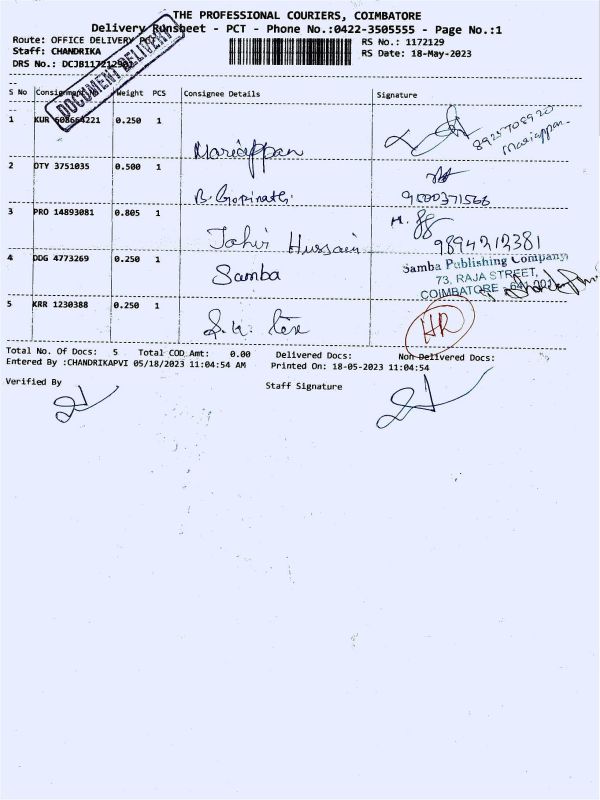 THE PROFESSIONAL COURIERS, COIMBATORE
Delivery Runsheet - PCT - Phone No.:0422-3505555 - Page No.:1
Route: OFFICE DELIVERY PCT
RS No.: 1172129
Staff: CHANDRIKA
RS Date: 18-May-2023
DRS No.:
DOCUMENT DELIVERY
S No Consignment No Weight PCS Consignee Details Signature
1 KUR 0.250 1 Mariappan
8925708920
Mariappan
2 DTY 3751035 0.500 1 B. Gopinath
9500371566
3 PRO 14893081 0.805 1 Tahir Hussain
9894212381
4 DDG 4773269 0.250 1 Samba
Samba Publishing Company
73, RAJA STREET,
COIMBATORE - 641 001
5 KRR 1230388 0.250 1
HR
Total No. Of Docs: 5 Total COD Amt: 0.00 Delivered Docs: Non Delivered Docs:
Entered By :CHANDRIKAPVI 05/18/2023 11:04:54 AM Printed On: 18-05-2023 11:04:54
Verified By
Staff Signature